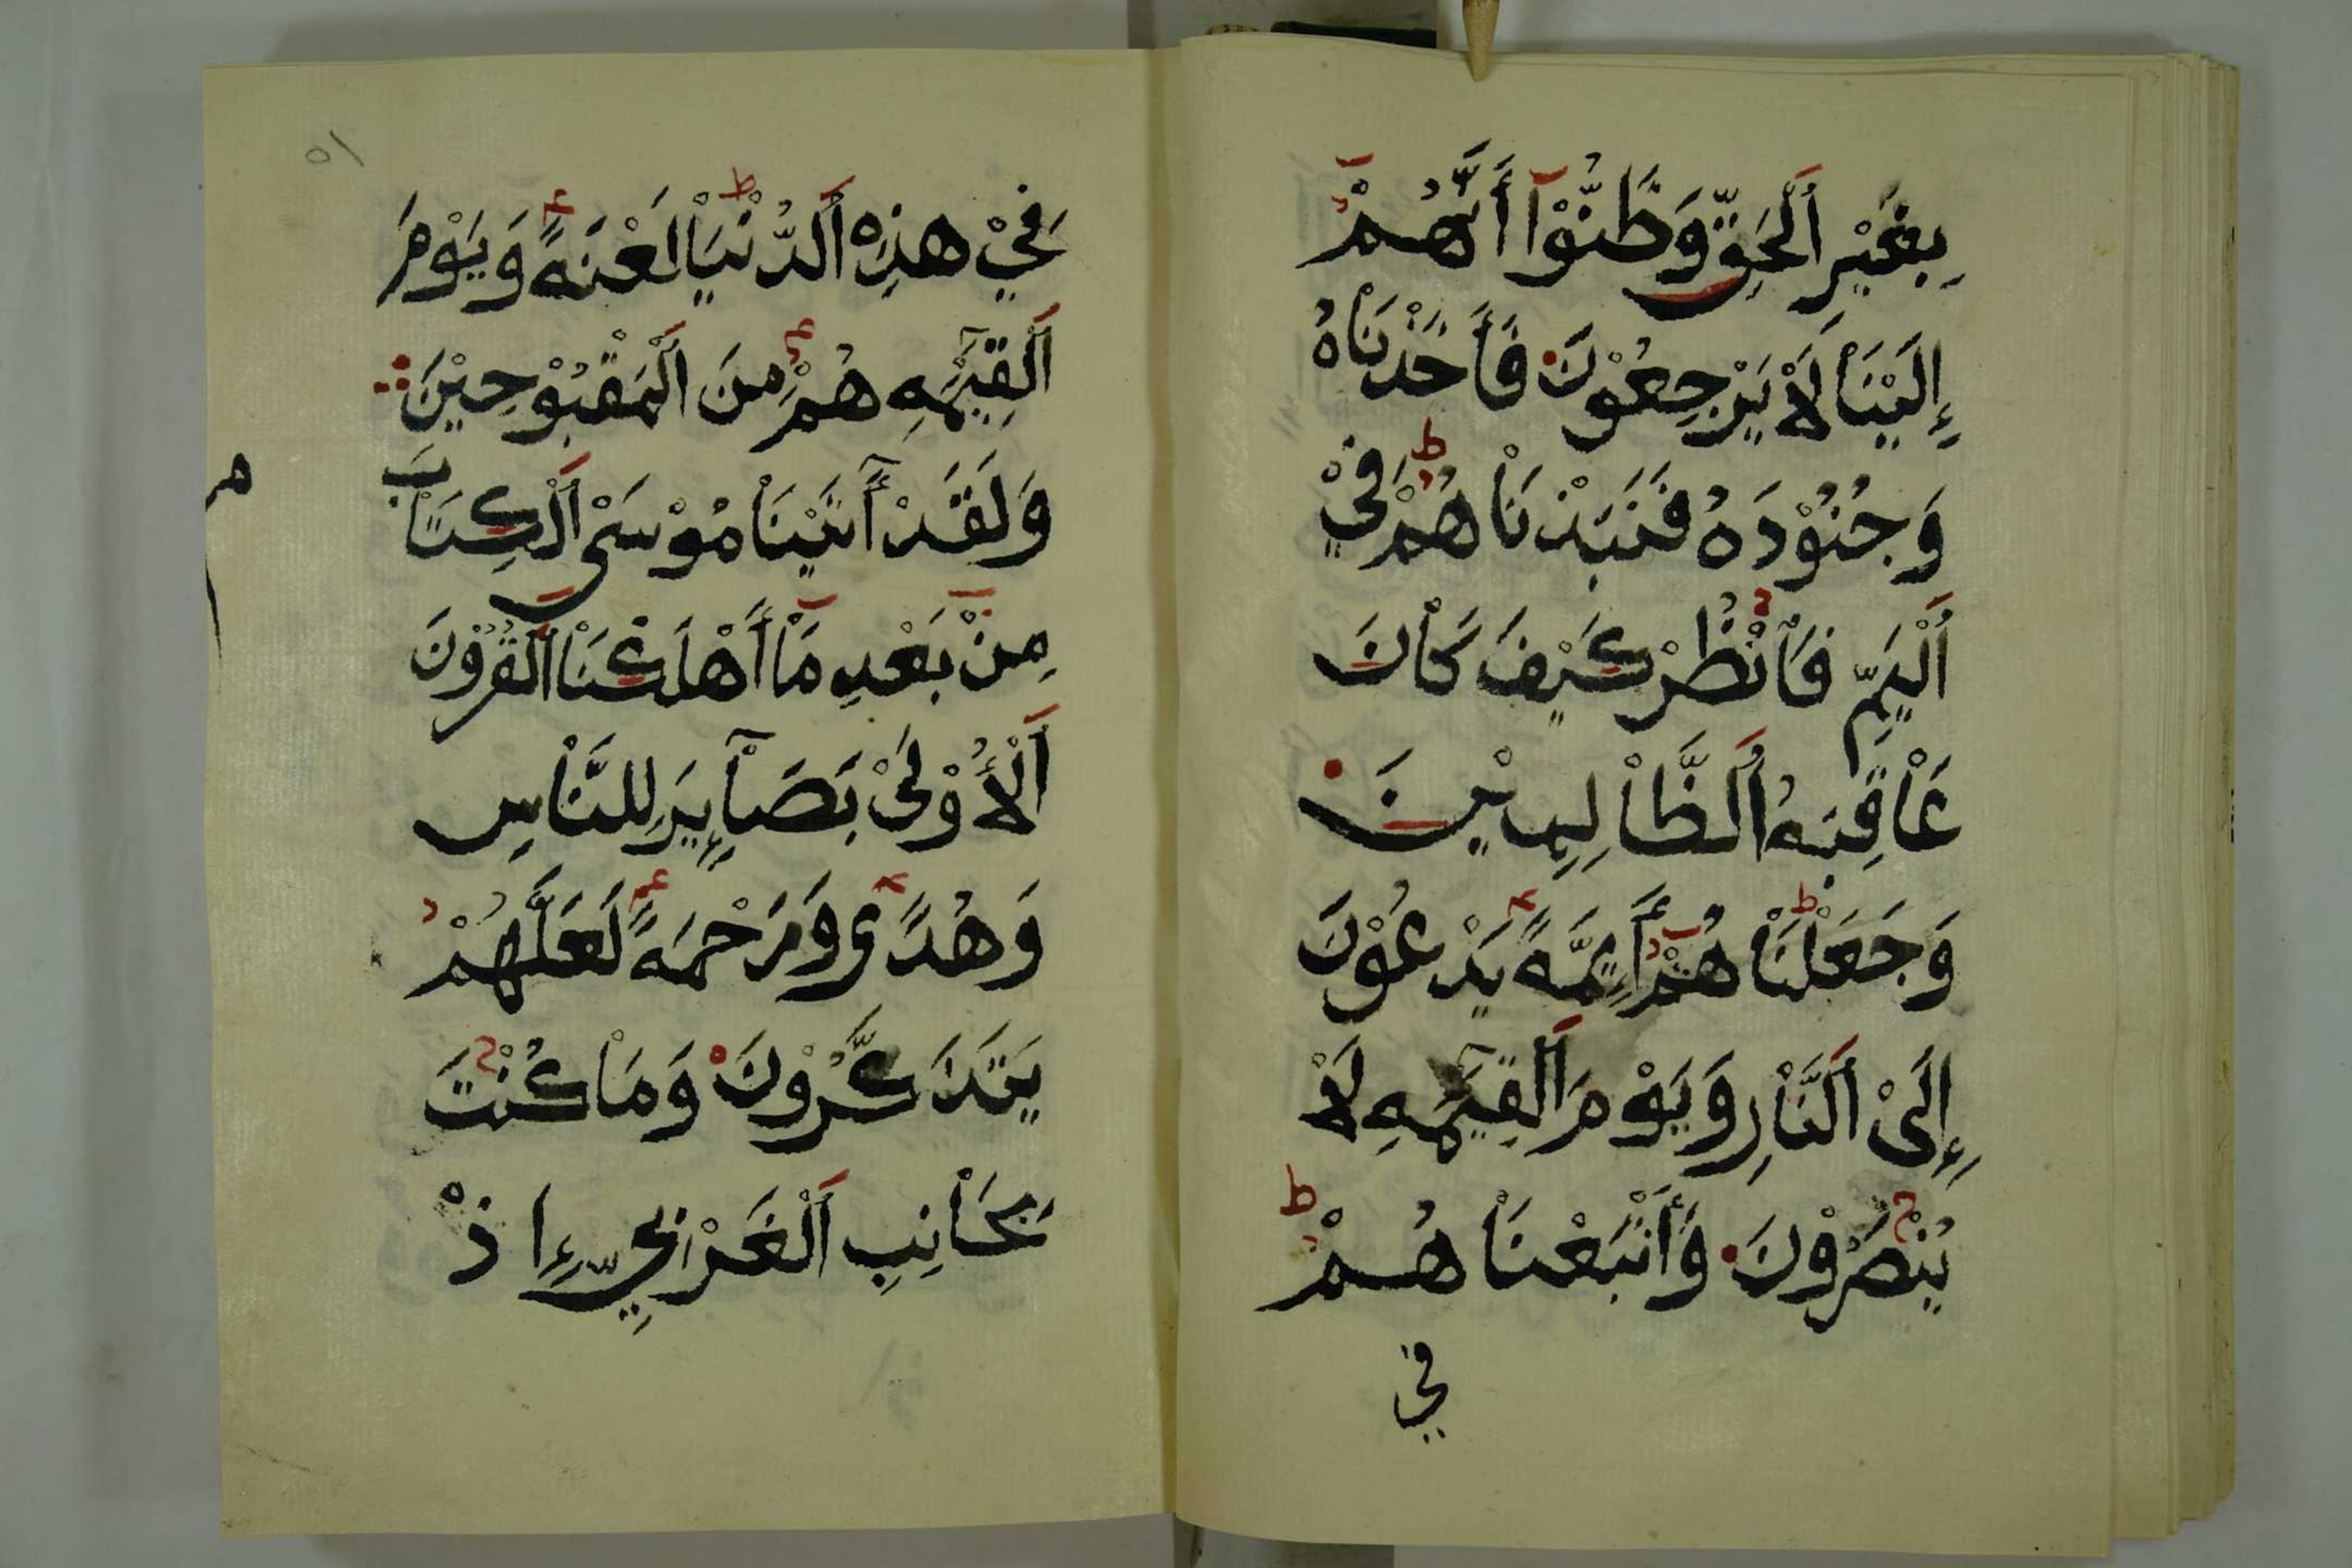 بِغَيْرِ اَلْحَقِّ وَظَنُّوْآ أَنَّهُمْ
إِلَيْنَاْ لَاْ يَرْجِعُوْنَ فَأَخَذْنَاْهُ
وَجُنُوْدَهُ فَنَبَذْنَاْهُمْ فِيْ
اَلْيَمِّ فَاْنْظُرْ كَيْفَ كَاْنَ
عَاْقِبَهُ اَلظَّاْلِمِيْنَ
وَجَعَلْنَاْهُمْ أَئِمَّهً يَدْعُوْنَ
إِلَىْ اَلنَّاْرِ وَيَوْمَ اَلْقِيَمَهِ لَاْ
يُنْصَرُوْنَ وَأَتْبَعْنَاْهُمْ
في
٥١
فِيْ هذِهِ اَلدُّنْيَاْ لَعْنَهً وَيَوْمَ
اَلْقِيَمَهِ هُمْ مِنَ اَلْمَقْبُوْحِيْنَ
وَلَقَدْ أٓتَيْنَاْ مُوْسَىْ اَلْكِتَاْبَ
مِنْ بَعْدِ مَاْ أَهْلَكْنَاْ اَلْقُرُوْنَ
اَلْأُوْلَىْ بَصَآئِرَ لِلنَّاْسِ
وَهُدًى وَرَحْمَهً لَعَلَّهُمْ
يَتَذَكَّرُوْنَ وَمَاْ كُنْتَ
بِجَاْنِبِ اَلْغَرْبِيِّ إِذْ